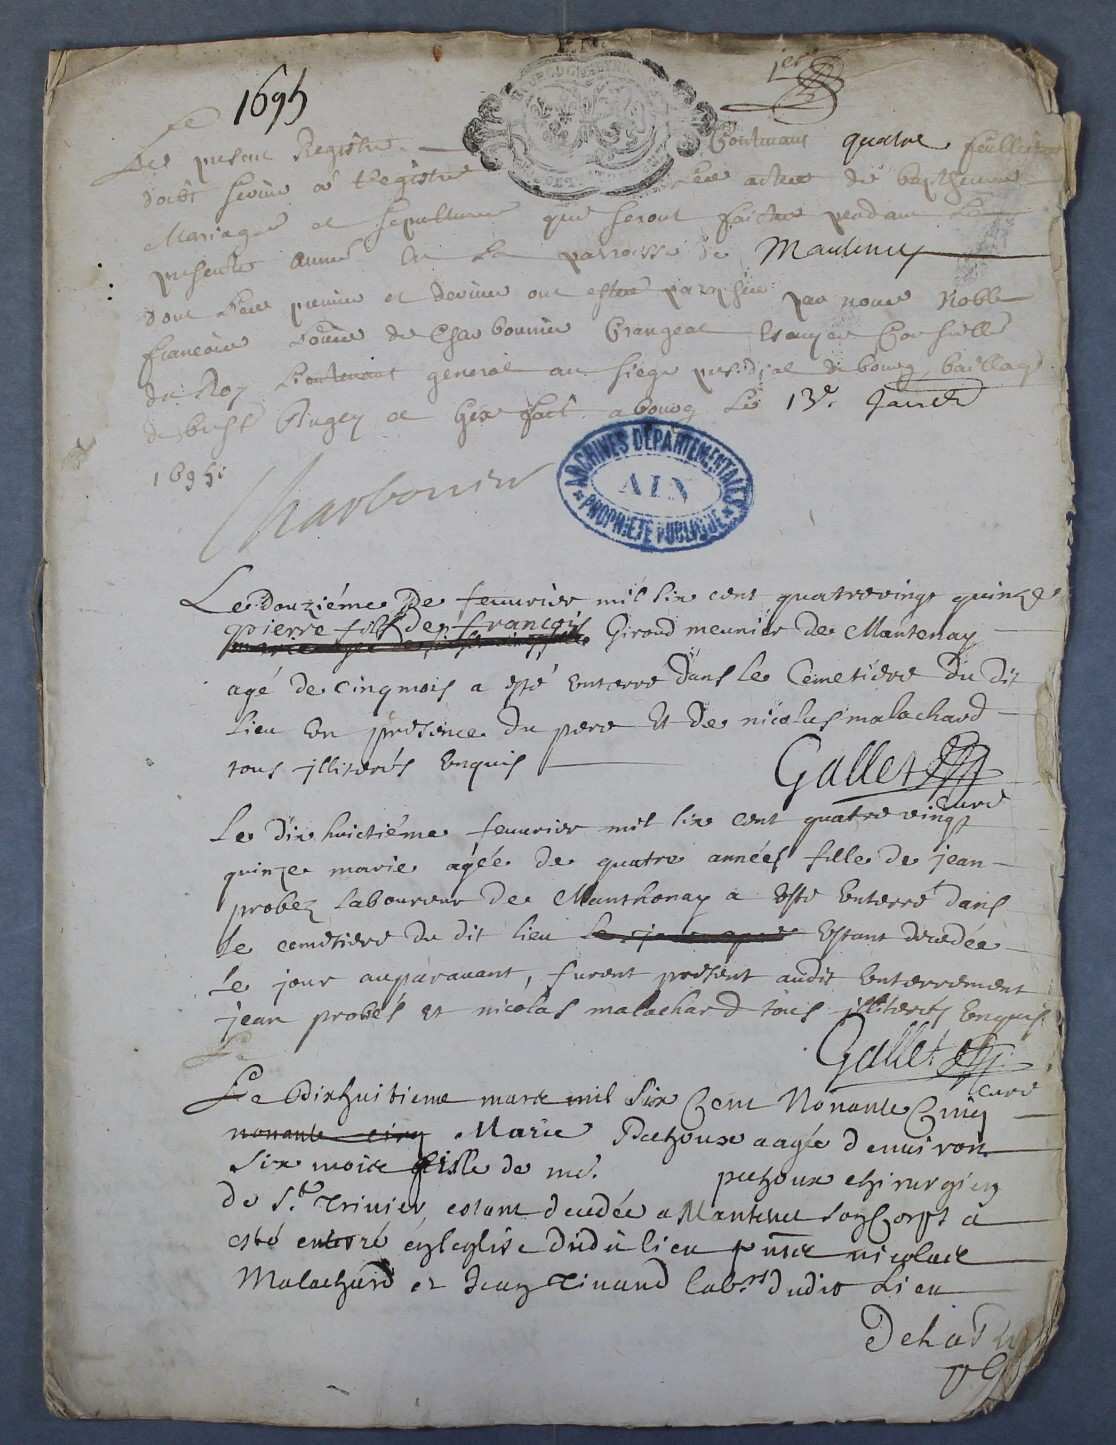 1695
1er
Le present Registre Contenant quatre feuillets
doibt servir a Registrer Les actes de baptheme
Mariages et sepultures que seront faictes pendant La
presente Année en La parroisse de Mantenay
dont Les premier et dernier ont estes paraphes par nous Noble
françois de Charbonnier Crangeat Escuyer Conseiller
du Roy Lieutenant general au siege presidial de bourg bailliage
de bresse Bugey et Gex faict a bourg Le 13e. Janvr
1695.
Charbonnier
ARCHIVES DÉPARTEMENTALES
AIN
PROPRIÉTÉ PUBLIQUE
Le douziéme de feuurier mil six cent quatrevingt quinze
pierre fils de françois Giroud meunier de Mantenay
agé de cinq mois a esté enterré dans le Cemetiere du dit
lieu en présence du pere et de nicolas malachard
tous illiterés enquis
Gallet
curé
Le dix huictiéme feuurier mil six cent quatre vingt
quinze marie agée de quatre années fille de jean
probez laboureur de Manthenay a esté enterré dans
le cemetiere du dit lieu estant decedée
le jour auparauant, furent présent audit enterrement
jean probés et nicolas malachard tous illiterés enquis
Gallet
curé
Le
Le dixhuitieme mars mil six Cent Nonante Cinq
nonante cinq Marie Puthoux aagée d enuiron
six mois fille de me. puthoux chirurgien
de St. Trivier estant decedée a Mantenet son Corps a
esté enterré en leglise dudit lieu pnts nicolas
Malachard et Jean Tinand labrs dudit Lieu